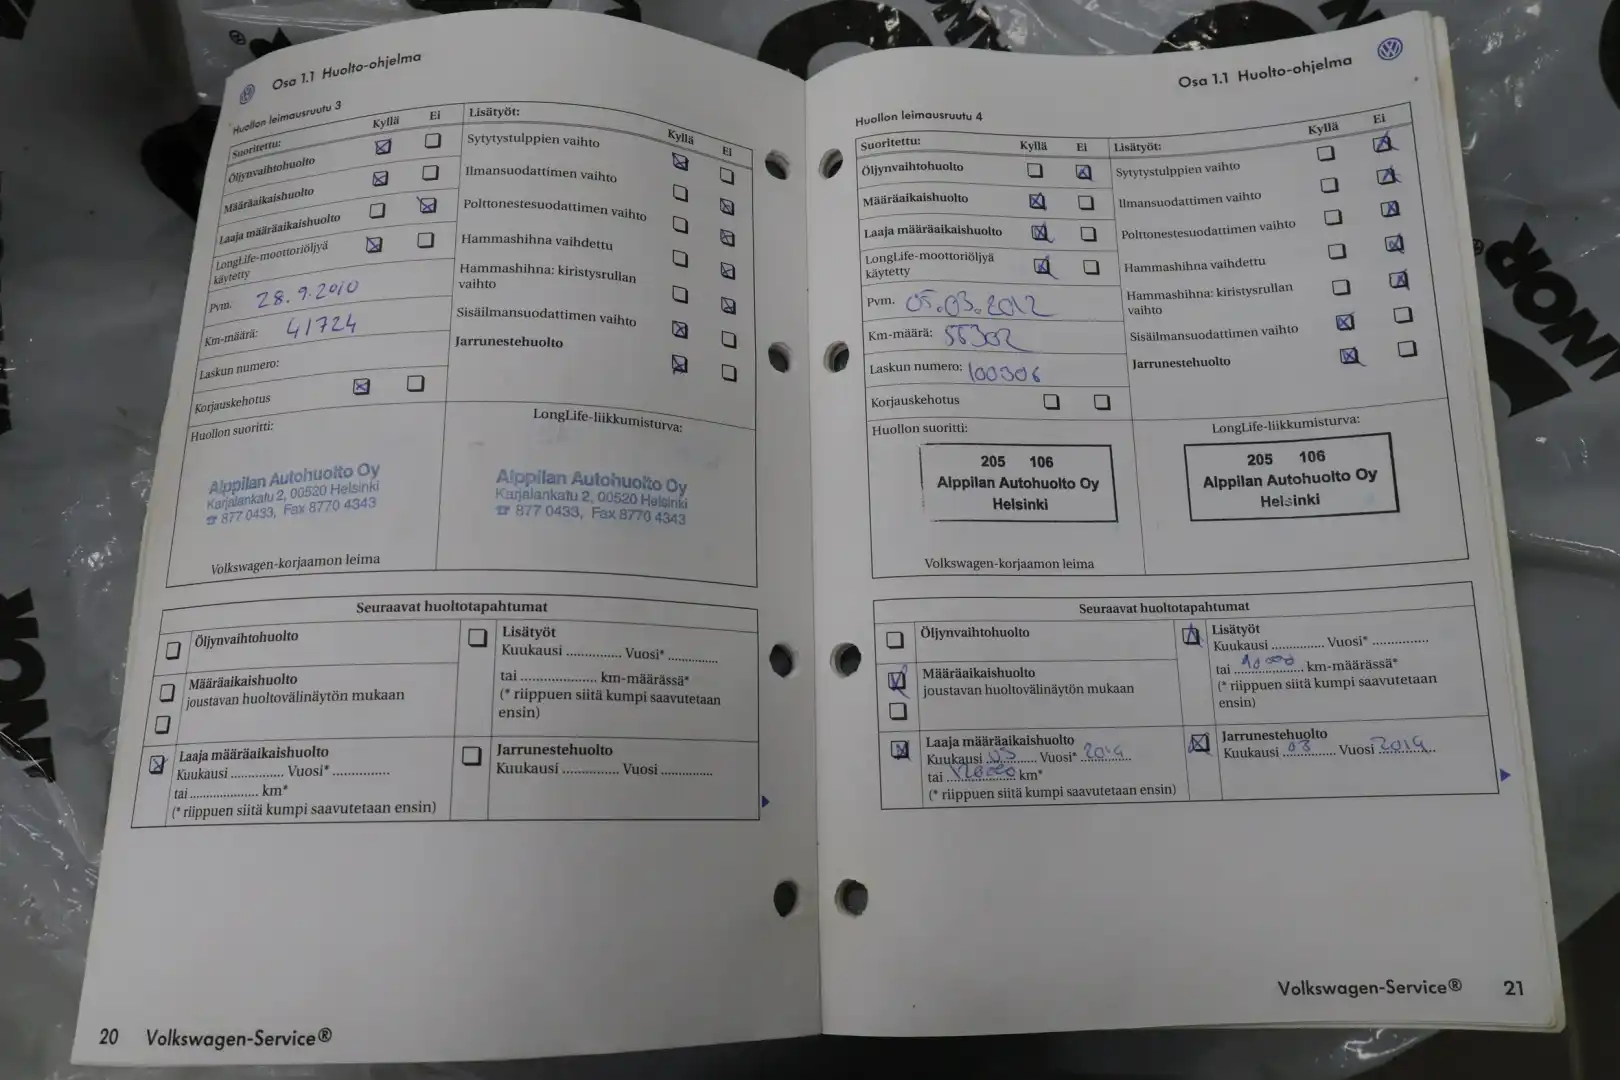 Osa 1.1 Huolto-ohjelma
Huollon leimausruutu 3
Suoritettu:
Kyllä
Ei
Öljynvaihtohuolto
Määräaikaishuolto
Laaja määräaikaishuolto
LongLife-moottoriöljyä
käytetty
Pvm. 28.9.2010
Km-määrä: 41724
Laskun numero:
Korjauskehotus
Lisätyöt:
Kyllä
Ei
Sytytystulppien vaihto
Ilmansuodattimen vaihto
Polttonestesuodattimen vaihto
Hammashihna vaihdettu
Hammashihna: kiristysrullan
vaihto
Sisäilmansuodattimen vaihto
Jarrunestehuolto
Huollon suoritti:
Alppilan Autohuolto Oy
Karjalankatu 2, 00520 Helsinki
☎ 877 0433, Fax 8770 4343
Volkswagen-korjaamon leima
LongLife-liikkumisturva:
Alppilan Autohuolto Oy
Karjalankatu 2, 00520 Helsinki
☎ 877 0433, Fax 8770 4343
Seuraavat huoltotapahtumat
Öljynvaihtohuolto
Määräaikaishuolto
joustavan huoltovälinäytön mukaan
Laaja määräaikaishuolto
Kuukausi ............... Vuosi* ................
tai .................... km*
(* riippuen siitä kumpi saavutetaan ensin)
Lisätyöt
Kuukausi ............... Vuosi* ..............
tai ..................... km-määrässä*
(* riippuen siitä kumpi saavutetaan
ensin)
Jarrunestehuolto
Kuukausi ............... Vuosi ..............
20 Volkswagen-Service®
Osa 1.1 Huolto-ohjelma
Huollon leimausruutu 4
Suoritettu:
Kyllä
Ei
Öljynvaihtohuolto
Määräaikaishuolto
Laaja määräaikaishuolto
LongLife-moottoriöljyä
käytetty
Pvm. 05.03.2012
Km-määrä: 55302
Laskun numero: 100306
Korjauskehotus
Lisätyöt:
Kyllä
Ei
Sytytystulppien vaihto
Ilmansuodattimen vaihto
Polttonestesuodattimen vaihto
Hammashihna vaihdettu
Hammashihna: kiristysrullan
vaihto
Sisäilmansuodattimen vaihto
Jarrunestehuolto
Huollon suoritti:
205 106
Alppilan Autohuolto Oy
Helsinki
Volkswagen-korjaamon leima
LongLife-liikkumisturva:
205 106
Alppilan Autohuolto Oy
Helsinki
Seuraavat huoltotapahtumat
Öljynvaihtohuolto
Määräaikaishuolto
joustavan huoltovälinäytön mukaan
Laaja määräaikaishuolto
Kuukausi 03 Vuosi* 2014
tai km*
(* riippuen siitä kumpi saavutetaan ensin)
Lisätyöt
Kuukausi ............... Vuosi* ...............
tai km-määrässä*
(* riippuen siitä kumpi saavutetaan
ensin)
Jarrunestehuolto
Kuukausi 03 Vuosi 2014
Volkswagen-Service® 21